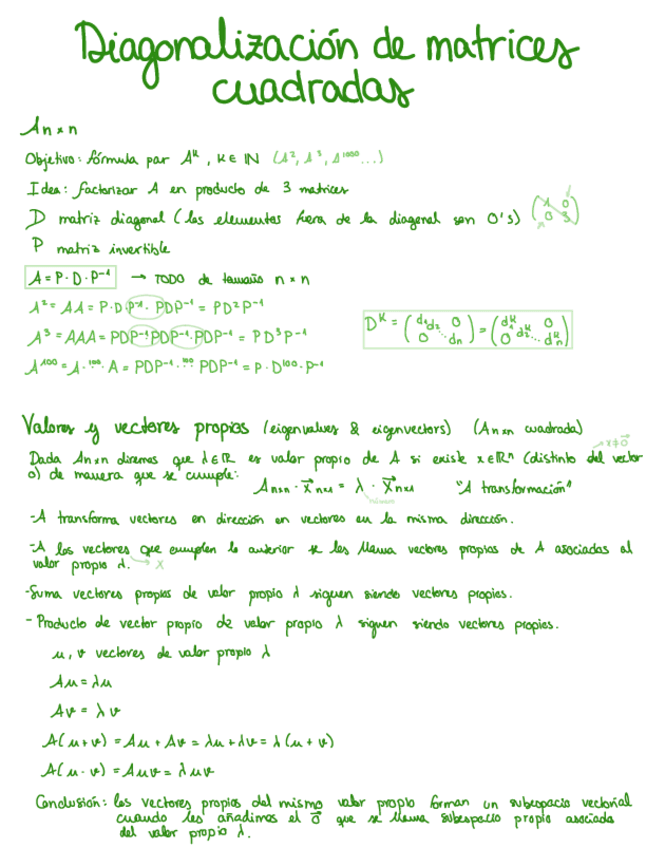 Diagonalización de matrices
cuadradas
A n×n
Objetivo: fórmula par A^k, k ∈ ℕ (A², A³, A¹⁰⁰⁰...)
Idea: factorizar A en producto de 3 matrices
D matriz diagonal (los elementos fuera de la diagonal son 0's) (1 0 / 0 3)
P matriz invertible
A = P·D·P⁻¹ → TODO de tamaño n×n
A² = AA = P·D·P⁻¹·PDP⁻¹ = PD²P⁻¹
A³ = AAA = PDP⁻¹·PDP⁻¹·PDP⁻¹ = PD³P⁻¹
D^k = (d₁ d₂ 0 / 0 ... dₙ) = (d₁^k 0 / 0 d₂^k ... dₙ^k)
A¹⁰⁰ = A·¹⁰⁰·A = PDP⁻¹·¹⁰⁰·PDP⁻¹ = P·D¹⁰⁰·P⁻¹
Valores y vectores propios (eigenvalues & eigenvectors) (A n×n cuadrada)
x≠0⃗
Dada A n×n diremos que λ∈ℝ es valor propio de A si existe x∈ℝⁿ (distinto del vector
0) de manera que se cumple:
A n×n · x⃗ n×1 = λ · x⃗ n×1 "A transformación"
número
-A transforma vectores en dirección en vectores en la misma dirección.
-A los vectores que cumplen lo anterior se les llama vectores propios de A asociadas al
valor propio λ. → x
-Suma vectores propios de valor propio λ siguen siendo vectores propios.
- Producto de vector propio de valor propio λ siguen siendo vectores propios.
u, v vectores de valor propio λ
Au = λu
Av = λv
A(u+v) = Au + Av = λu + λv = λ(u+v)
A(u·v) = Auv = λuv
Conclusión: los vectores propios del mismo valor propio forman un subespacio vectorial
cuando les añadimos el 0⃗ que se llama subespacio propio asociado
del valor propio λ.